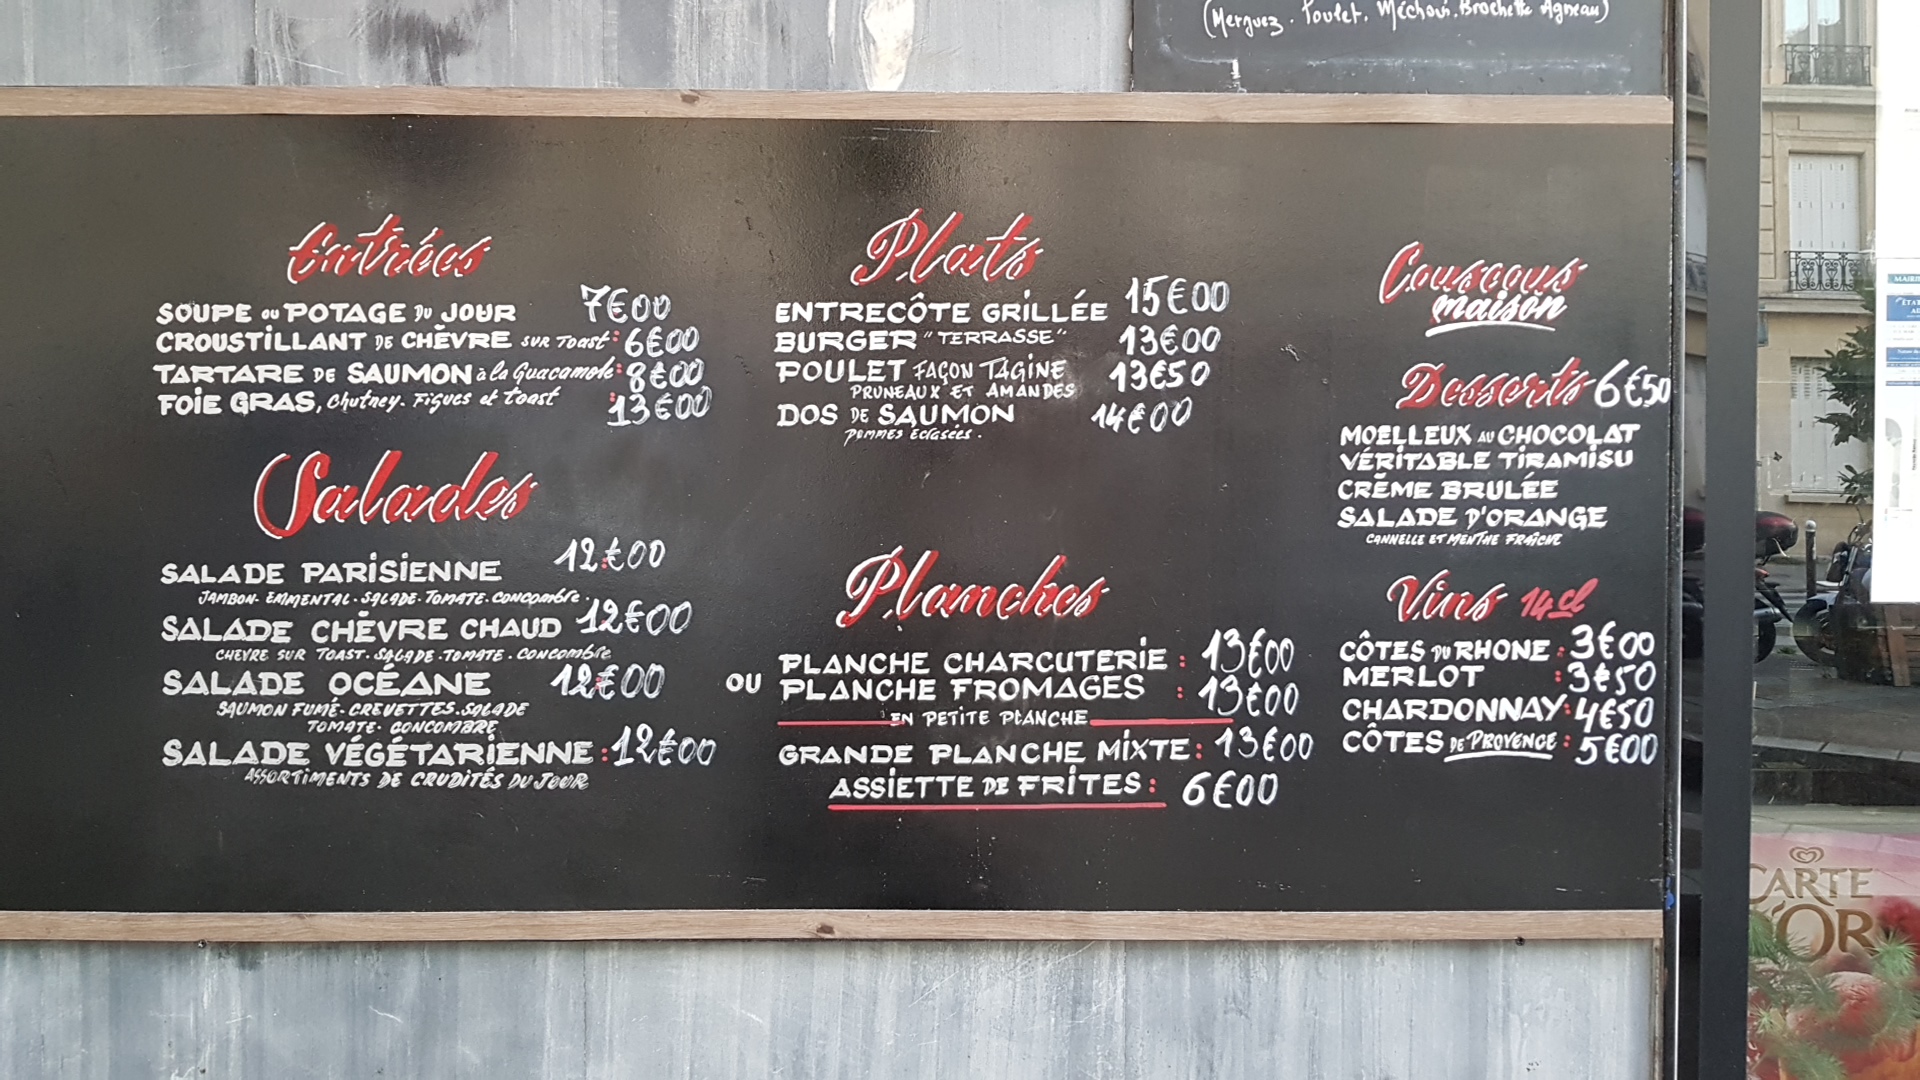 (Merguez. Poulet. Méchoui. Brochette Agneau)
Entrées
SOUPE ou POTAGE DU JOUR 7€00
CROUSTILLANT DE CHÈVRE SUR Toast: 6€00
TARTARE DE SAUMON à la Guacamole: 8€00
FOIE GRAS, Chutney. Figues et toast : 13€00
Salades
SALADE PARISIENNE 12€00
JAMBON. EMMENTAL. SALADE. TOMATE. CONCOMBRE.
SALADE CHÈVRE CHAUD 12€00
CHEVRE SUR TOAST. SALADE. TOMATE. CONCOMBRE
SALADE OCÉANE 12€00
SAUMON FUMÉ. CREVETTES. SALADE
TOMATE. CONCOMBRE
SALADE VÉGÉTARIENNE : 12€00
ASSORTIMENTS DE CRUDITÉS DU JOUR
Plats
ENTRECÔTE GRILLÉE 15€00
BURGER "TERRASSE" 13€00
POULET FAÇON TAGINE 13€50
PRUNEAUX ET AMANDES
DOS DE SAUMON 14€00
POMMES ECRASÉES.
Planches
PLANCHE CHARCUTERIE : 13€00
OU PLANCHE FROMAGES : 13€00
EN PETITE PLANCHE
GRANDE PLANCHE MIXTE : 13€00
ASSIETTE DE FRITES : 6€00
Couscous
maison
Desserts 6€50
MOELLEUX AU CHOCOLAT
VÉRITABLE TIRAMISU
CRÈME BRULÉE
SALADE D'ORANGE
CANNELLE ET MENTHE FRAÎCHE
Vins 14cl
CÔTES DU RHONE : 3€00
MERLOT : 3€50
CHARDONNAY : 4€50
CÔTES DE PROVENCE : 5€00
CARTE
D'OR